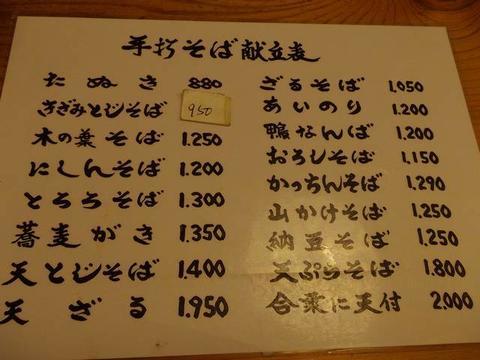 手打そば献立表
たぬき 880
きざみとじそば 950
木の葉そば 1.250
にしんそば 1.200
とろろそば 1.300
蕎麦がき 1.350
天とじそば 1.400
天ざる 1.950
ざるそば 1.050
あいのり 1.200
鴨なんば 1.200
おろしそば 1.150
かっちんそば 1.290
山かけそば 1.250
納豆そば 1.250
天ぷらそば 1.800
合乗に天付 2.000